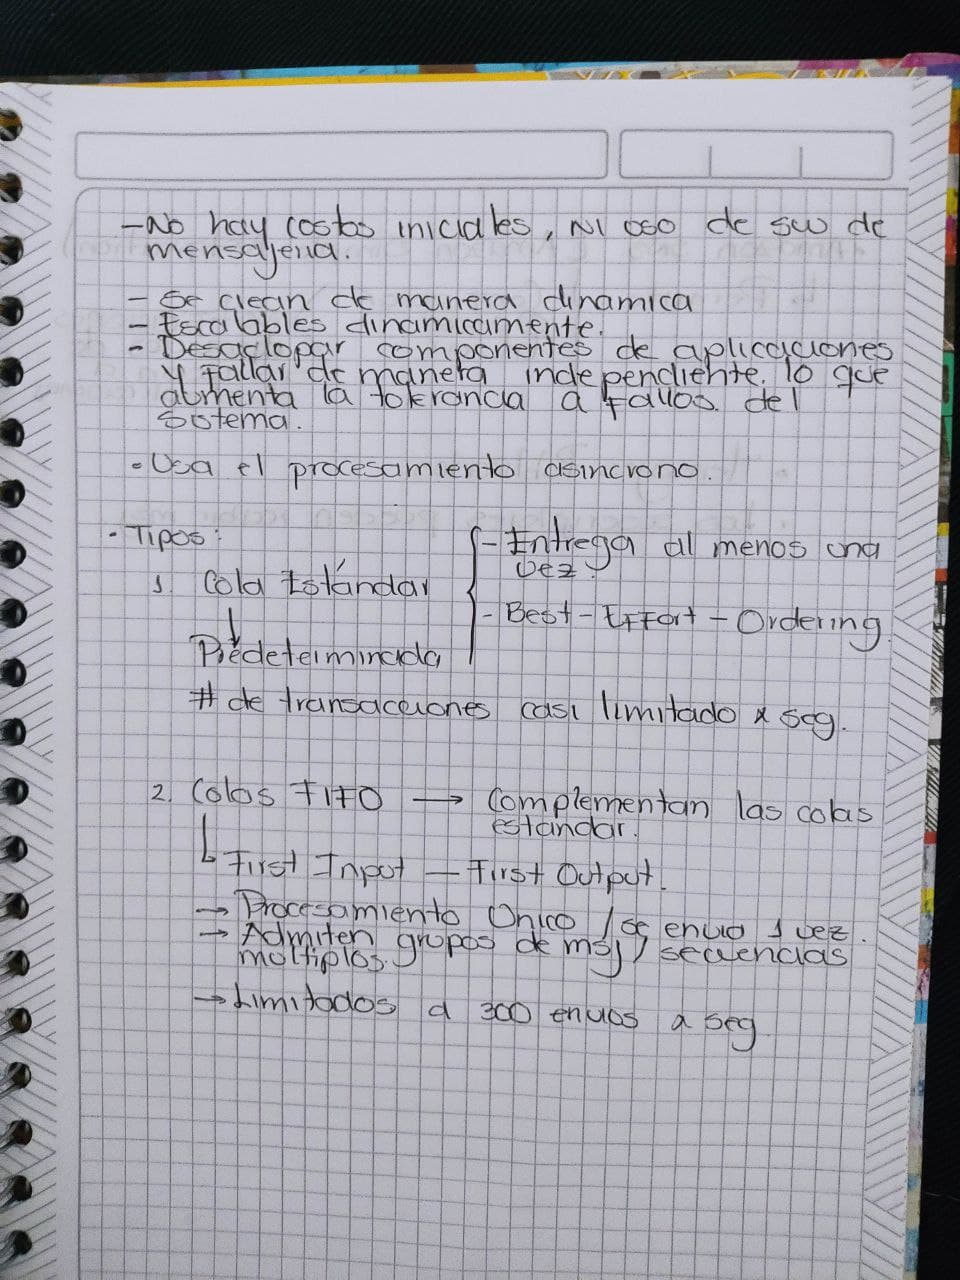 - No hay costos iniciales, NI uso de sw de
mensajería.
- Se crean de manera dinamica
- Escalables dinamicamente.
- Desaclopar componentes de aplicaciones
y fallar de manera independiente. lo que
aumenta la tolerancia a fallos del
sistema.
• Usa el procesamiento asincrono.
• Tipos:
1. Cola Estándar
↓
Predeterminada
- Entrega al menos una
vez.
- Best - Effort - Ordering
# de transacciones casi limitado x seg.
2. Colas FIFO → Complementan las colas
estandar.
↳ First Input - First Output.
→ Procesamiento Único / se envio 1 vez.
→ Admiten grupos de msj, secuencias
multiplos.
→ Limitados a 300 envios a seg